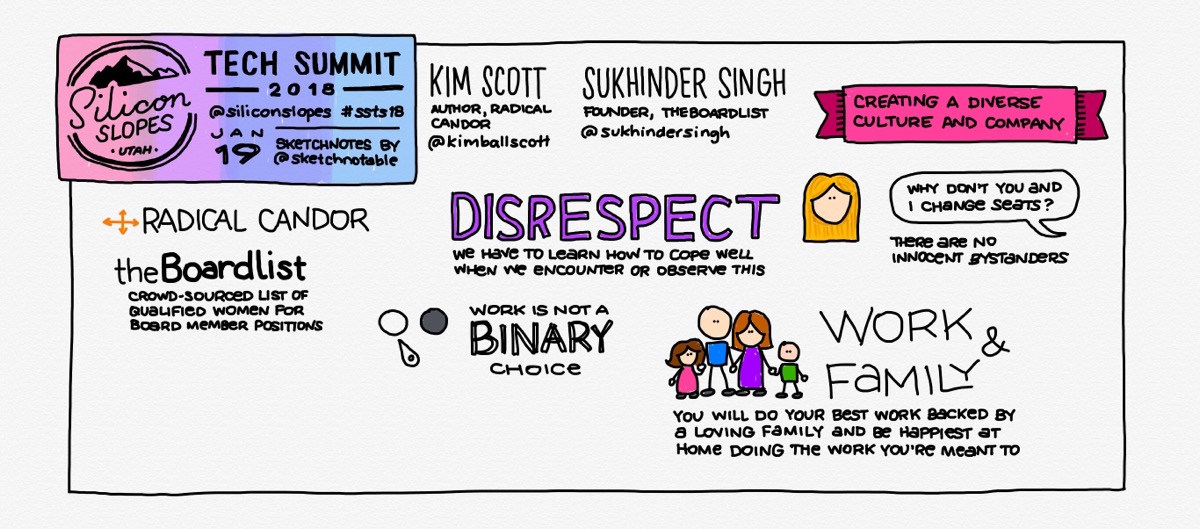 Silicon
SLOPES
• UTAH •
TECH SUMMIT
2018
@siliconslopes #ssts18
JAN
19
SKETCHNOTES BY
@sketchnotable
KIM SCOTT
AUTHOR, RADICAL
CANDOR
@kimballscott
SUKHINDER SINGH
FOUNDER, THEBOARDLIST
@sukhindersingh
CREATING A DIVERSE
CULTURE AND COMPANY
RADICAL CANDOR
theBoardlist
CROWD-SOURCED LIST OF
QUALIFIED WOMEN FOR
BOARD MEMBER POSITIONS
DISRESPECT
WE HAVE TO LEARN HOW TO COPE WELL
WHEN WE ENCOUNTER OR OBSERVE THIS
WHY DON'T YOU AND
I CHANGE SEATS?
THERE ARE NO
INNOCENT BYSTANDERS
WORK IS NOT A
BINARY
CHOICE
WORK &
FAMILY
YOU WILL DO YOUR BEST WORK BACKED BY
A LOVING FAMILY AND BE HAPPIEST AT
HOME DOING THE WORK YOU'RE MEANT TO